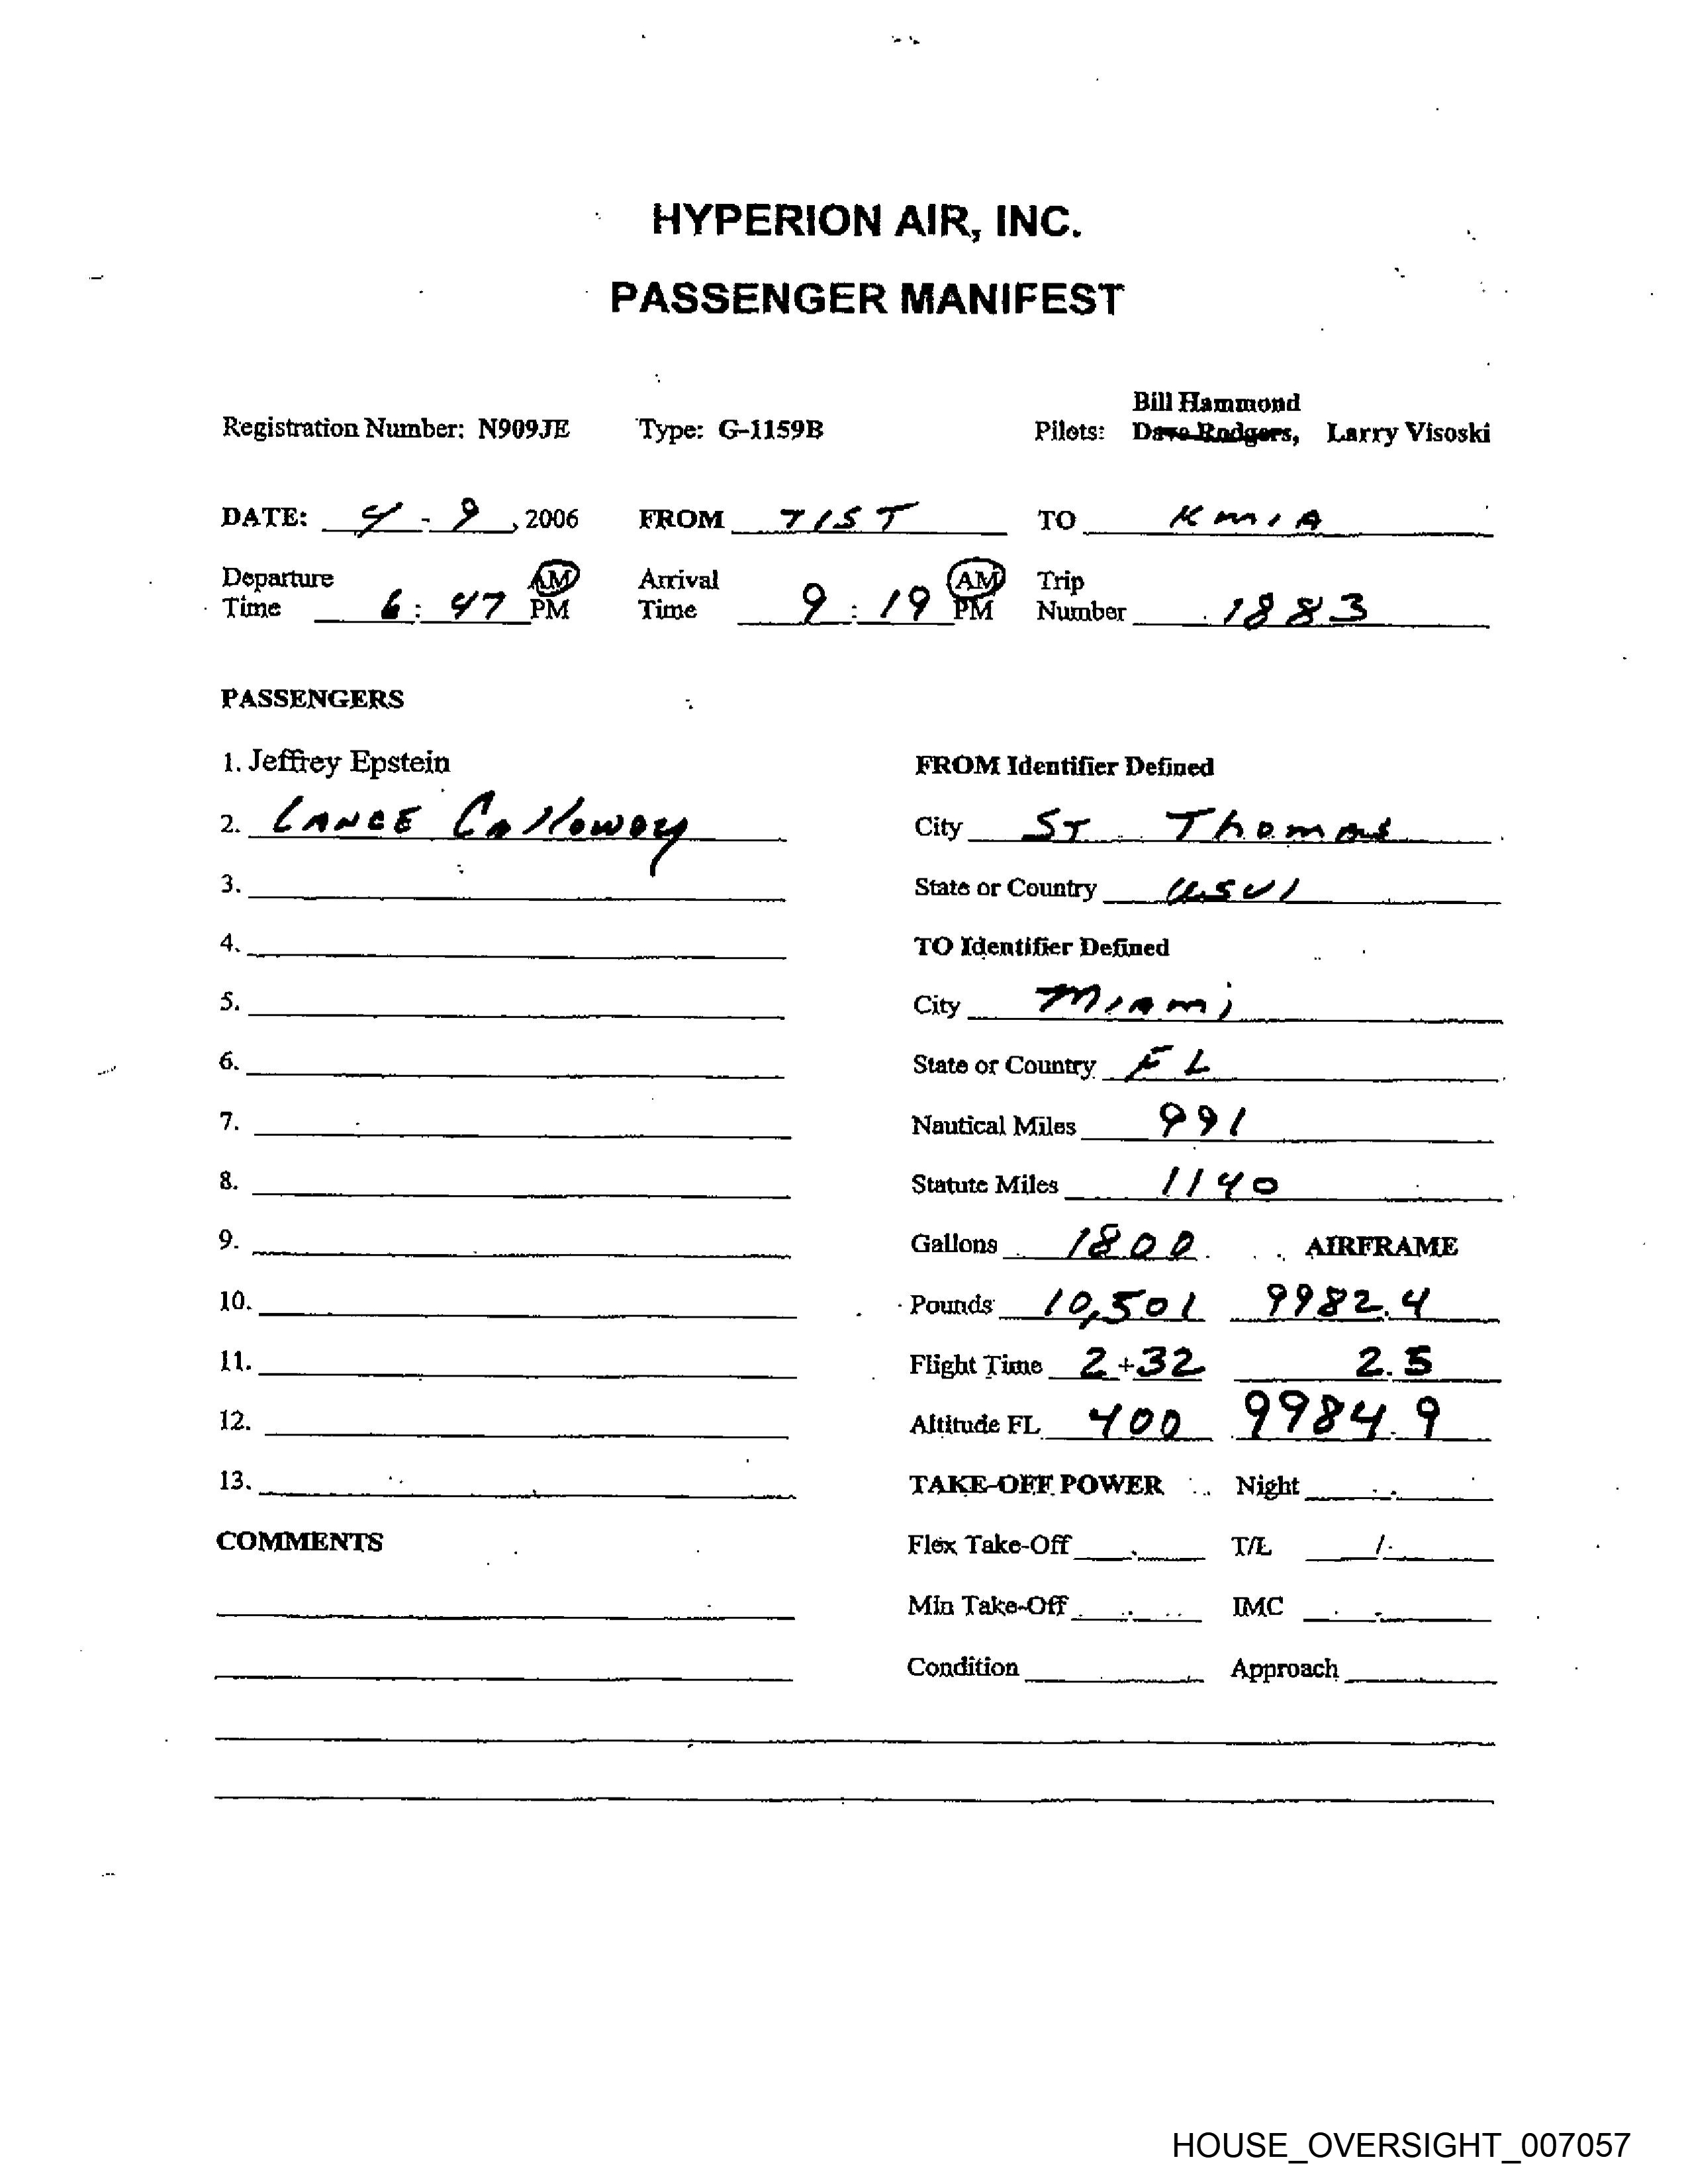 HYPERION AIR, INC.
PASSENGER MANIFEST
Bill Hammond
Registration Number: N909JE Type: G-1159B Pilots: Dave Rodgers, Larry Visoski
DATE: 4 - 9, 2006 FROM TIST TO KMIA
Departure Time 6:47 AM PM Arrival Time 9:19 AM PM Trip Number 1883
PASSENGERS
1. Jeffrey Epstein
2. LANCE Calloway
3.
4.
5.
6.
7.
8.
9.
10.
11.
12.
13.
COMMENTS
FROM Identifier Defined
City ST Thomas
State or Country USVI
TO Identifier Defined
City Miami
State or Country FL
Nautical Miles 991
Statute Miles 1140
Gallons 1800 AIRFRAME
Pounds 10,501 9982.4
Flight Time 2+32 2.5
Altitude FL 400 9984.9
TAKE-OFF POWER Night
Flex Take-Off T/L /
Min Take-Off IMC
Condition Approach
HOUSE_OVERSIGHT_007057